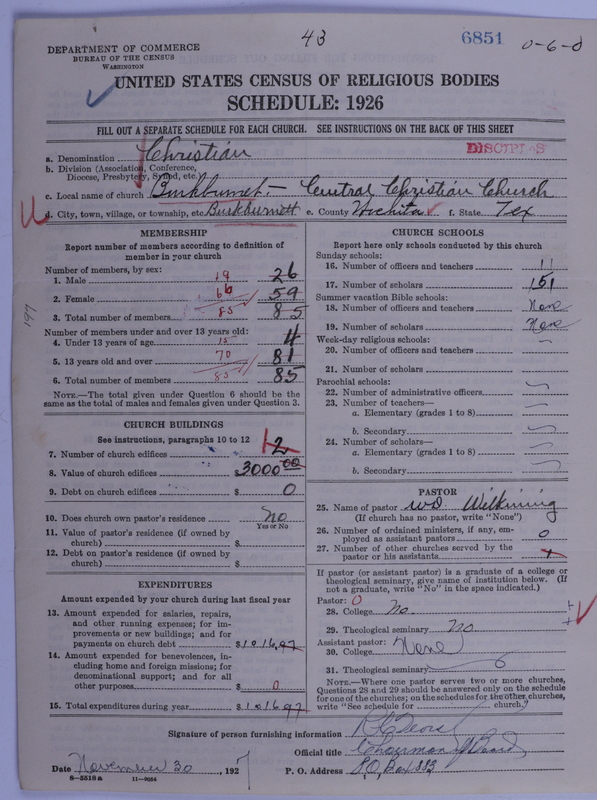 43
6851
0-6-0
DEPARTMENT OF COMMERCE
BUREAU OF THE CENSUS
WASHINGTON
UNITED STATES CENSUS OF RELIGIOUS BODIES
SCHEDULE: 1926
FILL OUT A SEPARATE SCHEDULE FOR EACH CHURCH. SEE INSTRUCTIONS ON THE BACK OF THIS SHEET
a. Denomination Christian
b. Division (Association, Conference,
Diocese, Presbytery, Synod, etc.
c. Local name of church Burkburnet - Central Christian Church
d. City, town, village, or township, etc. Burkburnett e. County Wichita f. State Tex
MEMBERSHIP
Report number of members according to definition of
member in your church
Number of members, by sex:
1. Male 19 26
2. Female 66 59
3. Total number of members 85 85
Number of members under and over 13 years old:
4. Under 13 years of age 15 4
5. 13 years old and over 70 81
6. Total number of members 85 85
NOTE.—The total given under Question 6 should be
same as the total of males and females given under Question 3.
CHURCH BUILDINGS
See instructions, paragraphs 10 to 12
7. Number of church edifices 1 2
8. Value of church edifices $3000 00
9. Debt on church edifices $ 0
10. Does church own pastor's residence No
Yes or No
11. Value of pastor's residence (if owned by
church) $
12. Debt on pastor's residence (if owned by
church) $
EXPENDITURES
Amount expended by your church during last fiscal year
13. Amount expended for salaries, repairs,
and other running expenses; for im-
provements or new buildings; and for
payments on church debt $1016.97
14. Amount expended for benevolences, in-
cluding home and foreign missions; for
denominational support; and for all
other purposes $ 0
15. Total expenditures during year $1016.97
CHURCH SCHOOLS
Report here only schools conducted by this church
Sunday schools:
16. Number of officers and teachers 11
17. Number of scholars 151
Summer vacation Bible schools:
18. Number of officers and teachers None
19. Number of scholars None
Week-day religious schools:
20. Number of officers and teachers
21. Number of scholars
Parochial schools:
22. Number of administrative officers
23. Number of teachers—
a. Elementary (grades 1 to 8)
b. Secondary
24. Number of scholars—
a. Elementary (grades 1 to 8)
b. Secondary
PASTOR
25. Name of pastor WD
(If church has no pastor, write "None")
26. Number of ordained ministers, if any, em-
ployed as assistant pastors 0
27. Number of other churches served by the
pastor or his assistants
If pastor (or assistant pastor) is a graduate of a college or
theological seminary, give name of institution below. (If
not a graduate, write "No" in the space indicated.)
Pastor: 0
28. College No
29. Theological seminary No
Assistant pastor:
30. College None
31. Theological seminary
NOTE.—Where one pastor serves two or more churches,
Questions 28 and 29 should be answered only on the schedule
for one of the churches; on the schedules for the other churches,
write "See schedule for church."
Signature of person furnishing information
Official title Chairman of Board
Date November 30, 1927 P. O. Address P.O. Box 883
8—5518 a 11—9064